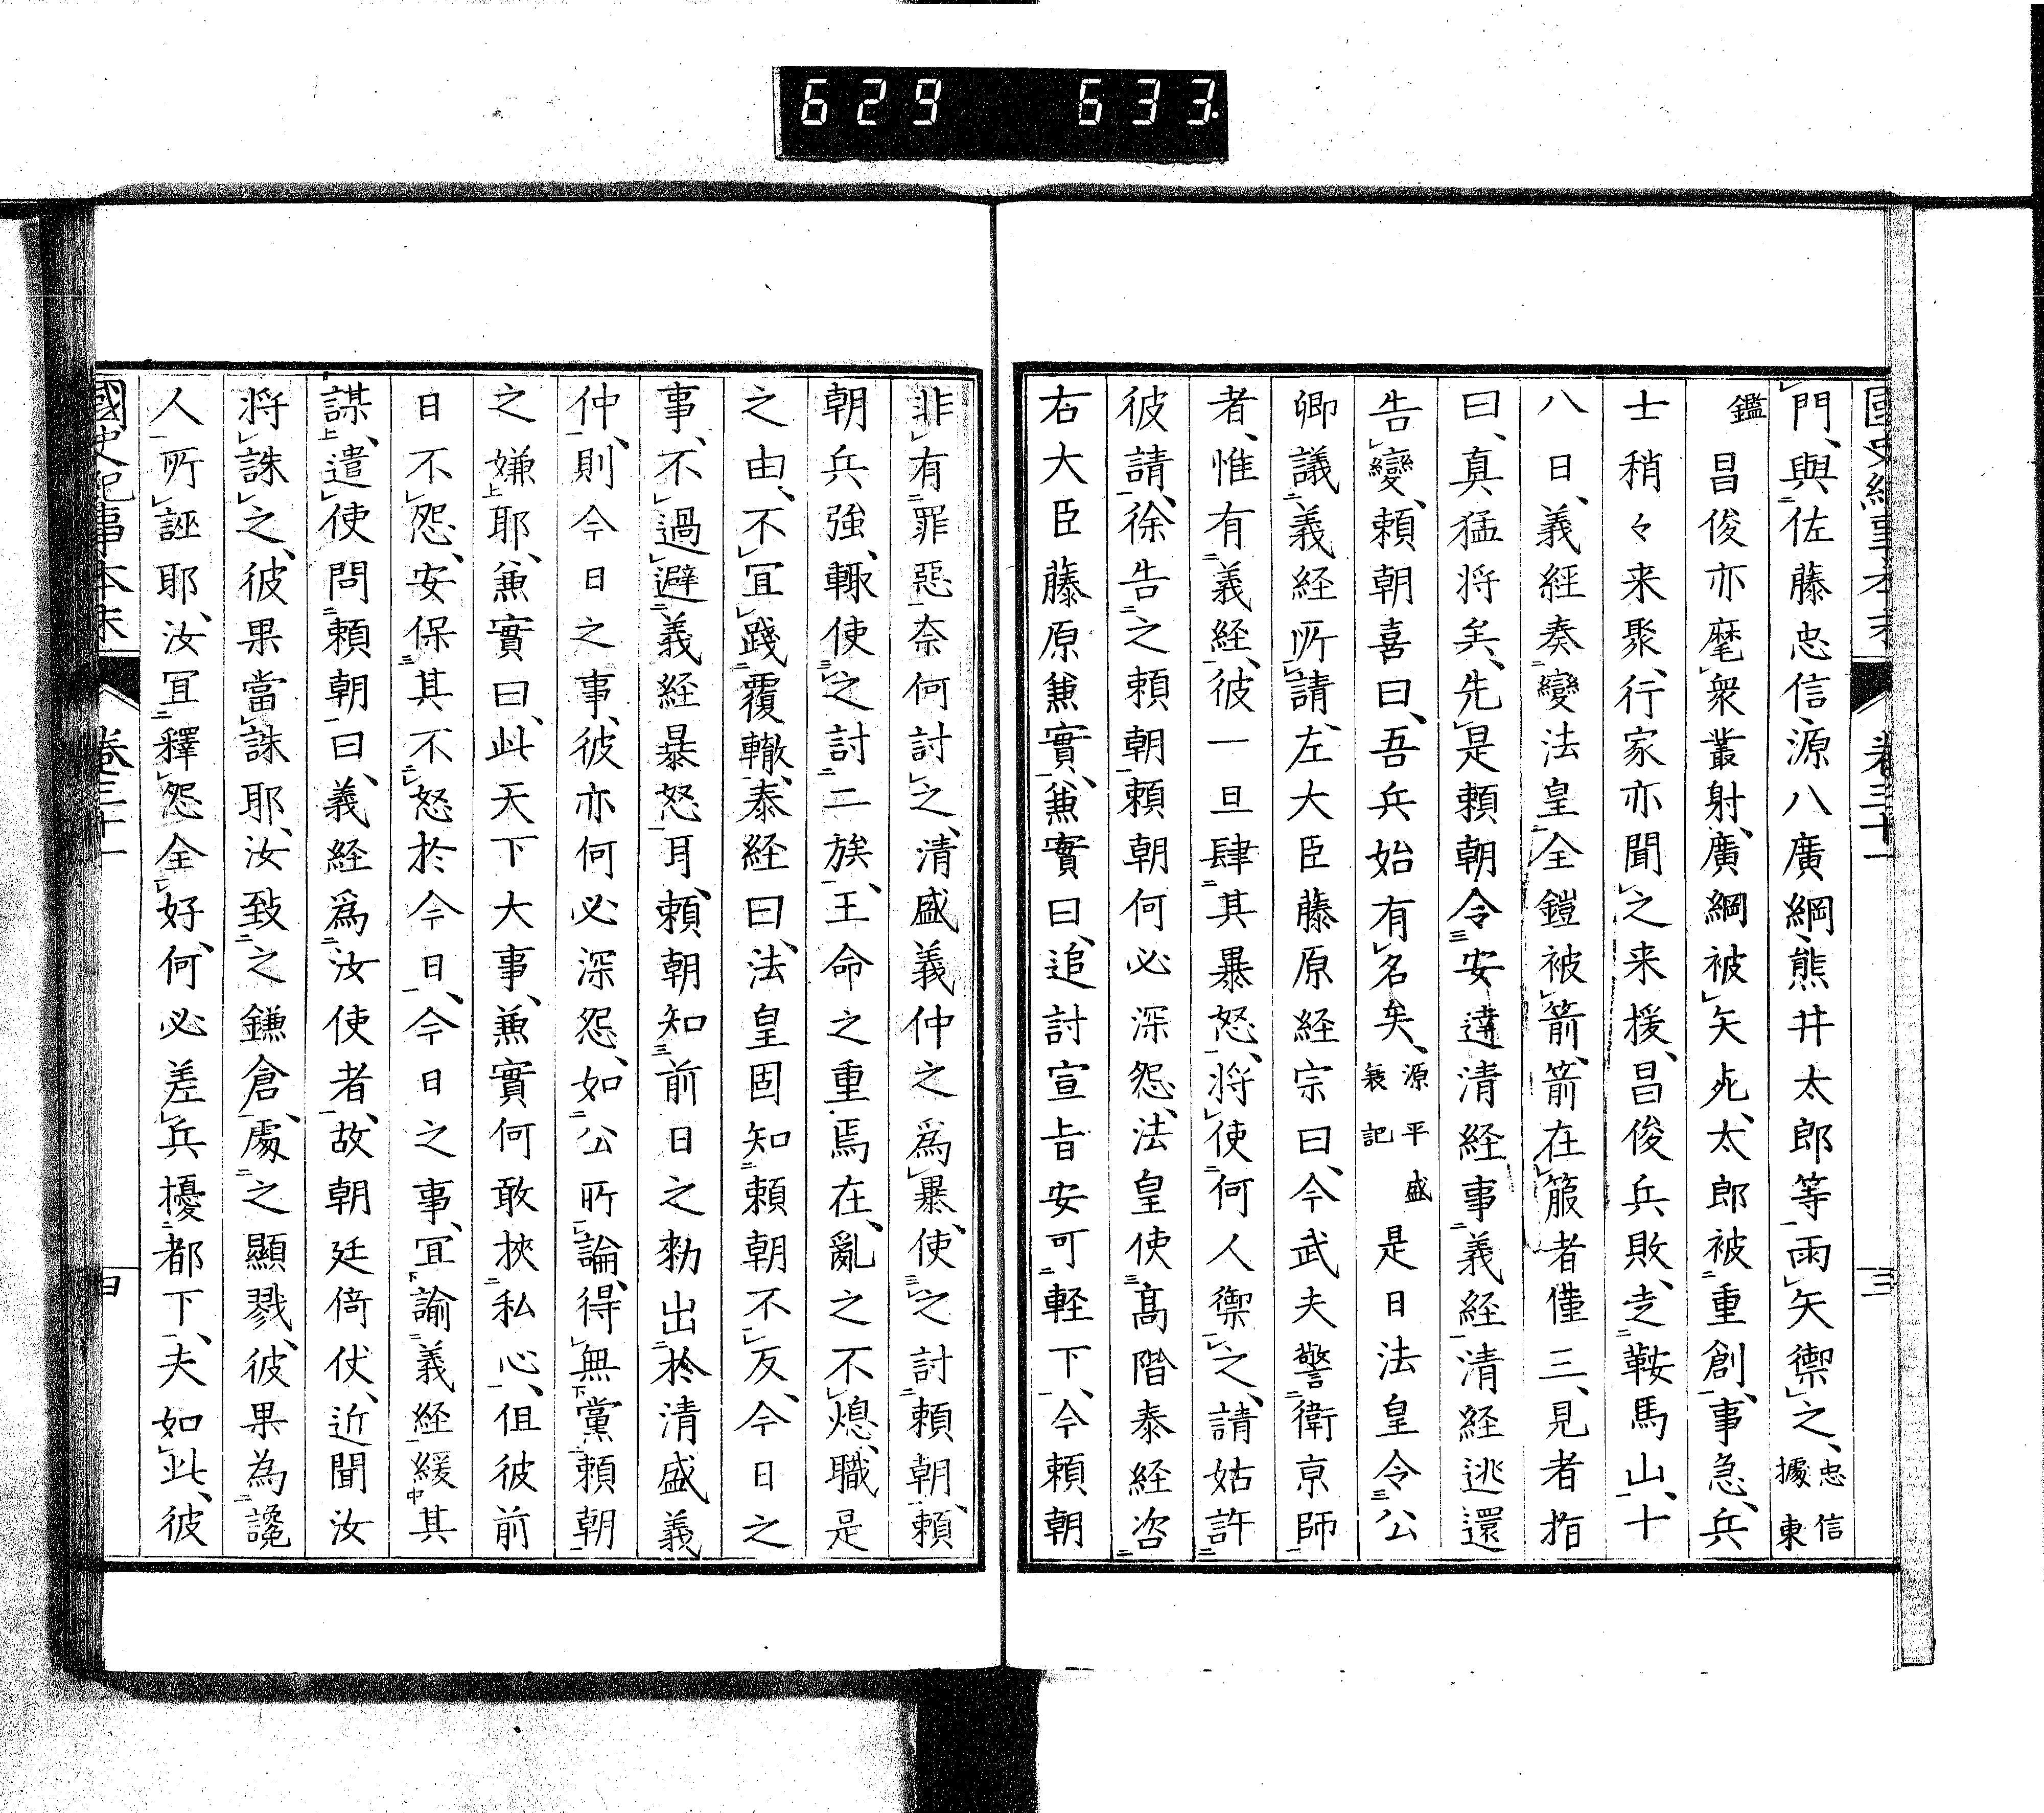 629 633
國史紀事本末 卷三十一 三
門、與佐藤忠信源八廣綱熊井太郎等雨矢禦之、忠信據東
鑑 昌俊亦麾衆叢射、廣綱被矢死、太郎被重創、事急、兵
士稍々来聚、行家亦聞之来援、昌俊兵敗、走鞍馬山、十
八日、義経奏變法皇、全鎧被箭、箭在箙者僅三、見者指
曰、真猛将矣、先是頼朝令安達清経事義経、清経逃還
告變、頼朝喜曰、吾兵始有名矣、源平盛衰記 是日法皇令公
卿議義経所請、左大臣藤原経宗曰、今武夫警衛京師
者、惟有義経、彼一旦肆其暴怒、将使何人禦之、請姑許
彼請、徐告之頼朝、頼朝何必深怨、法皇使髙階泰経咨
右大臣藤原兼實、兼實曰、追討宣旨安可軽下、今頼朝
非有罪惡奈何討之、清盛義仲之爲暴、使之討頼朝、頼
朝兵強、輙使之討二族、王命之重焉在、亂之不熄、職是
之由、不冝踐覆轍、泰経曰、法皇固知頼朝不反、今日之
事、不過避義経暴怒耳、頼朝知前日之勑出於清盛義
仲、則今日之事、彼亦何必深怨、如公所論、得無黨頼朝
之嫌耶、兼實曰、此天下大事、兼實何敢挾私心、但彼前
日不怨、安保其不怒於今日、今日之事、冝諭義経緩其
謀、遣使問頼朝曰、義経爲汝使者、故朝廷倚仗、近聞汝
将誅之、彼果當誅耶、汝致之鎌倉、處之顯戮、彼果為讒
人所誣耶、汝冝釋怨全好、何必差兵擾都下、夫如此、彼
國史紀事本末 卷三十一 四